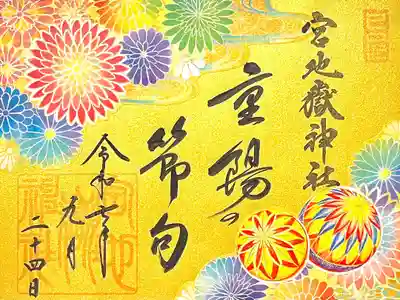 宮地嶽神社
重陽の
節句
令和七年
九月
二十四日